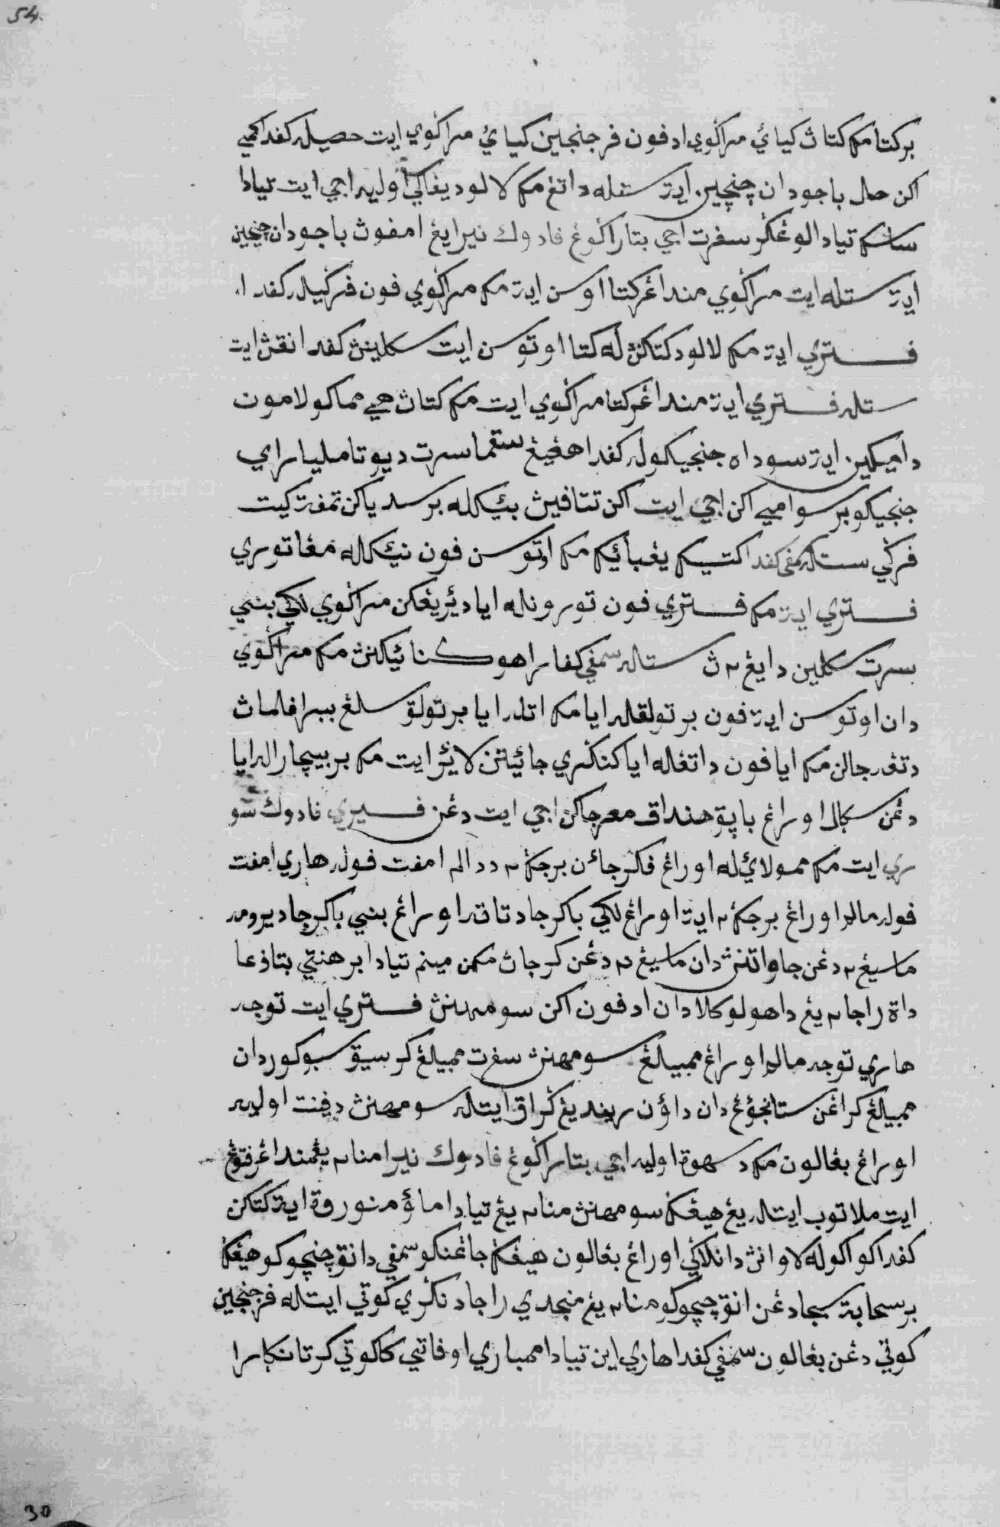 54
برکتا مک کتاڽ کيائي مراڬوي ادفون فرجنجين کيائي مراڬوي ايت حصيلله کفد کمي
اکن حال باجودان چنچين ايت ستله داتڠ مک لالو ديڠاکي اوليه اجي ايت تيادا
سام تيادا لوڠکر سفرت اجي بتارا ڬوڠ فادوک نيرا يڠ امفوڽ باجودان چنچين
ايت ستله ايت مراڬوي منداڠر کتا اوتوسن ايت مک مراڬوي فون فرڬيله کفد
فتري ايت مک لالو دکتاکنڽله کتا اوتوسن ايت سکلينڽ کفد انقڽ ايت
ستله فتري ايت منداڠر کتا مراڬوي ايت مک کتاڽ هي مماکو لامون
دميکين ايت سوداه جنجيکوله کفد اهڠيڠ ستڠما سرت ديوتا ملياراي
جنجيکو برسوامي اکن اجي ايت اکن تتافيڽ بئيکله برسدياکن تمفت کيت
فرڬي ستله سمفي کفد کتيک يڠ بائيک مک اوتوسن فون نئيکله مڠاتوري
فتري ايت مک فتري فون تورونله اي دئيريڠکن مراڬوي لاکي بيني
سرت سکلين دايڠ٢ڽ ستله سمفي کفارهو کنائيکنڽ مک مراڬوي
دان اوتوسن ايت فون برتولقله اي مک انتارا اي برتولق سلڠ ببراف لماڽ
دتڠه جالن مک اي فون داتڠله اي کنڬري جائيتن لايئر ايت مک بربيچاراله اي
دڠن سڬال اوراڠ باپق هندق معرجاکن اجي ايت دڠن فتيري فادوک سو
ري ايت مک ممولائيله اوراڠ فکرجائن برجاڬ٢ ددالم امفت فوله هاري امفت
فوله مالم اوراڠ برجاڬ٢ ايت اوراڠ لاکي باکرجا دتانه اوراڠ بيني باکرجا ديرومه
ماسيڠ٢ دڠن جاواتنڽ دان ماسيڠ٢ دڠن کرجاڽ مکن مينم تيادا برهنتي بتاڤعا
داة راجا٢ يڠ داهولو کالا دان ادفون اکن سومهنڽ فتري ايت توجه
هاري توجه مالم اوراڠ ممبيلڠ سومهنڽ سفرت ممبيلڠ کرسيق سبوکوردان
ممبيلڠ کراڠن ستنجوڠ دان داؤن ريندڠ يڠ کراق ايتله سومهنڽ دفنت اوليه
اوراڠ بڠالون مک دسهوة اوليه اجي بتارا ڬوڠ فادوک نيرا منا٢ يڠ منداڠر فنتڠ
ايت ملاتوب ايتله يڠ هيڠک سومهنڽ منا٢ يڠ تيادا ماؤ منوروة ايت کتاکن
کفد اکو اکوله لاوانڽ دانلاڬي اوراڠ بڠالون هيڠک جاڠنکو سمفي دانق چوچوکو هيڠک
برسحابة سجا دڠن انق چوچوکو منا٢ يڠ منجدي راجا دنڬري کوتي ايتله فرجنجين
کوتي دڠن بڠالون سمفي کفد هاري اين تيادا مهباري اوفاتي کاکوتي کرتانڬارا
30